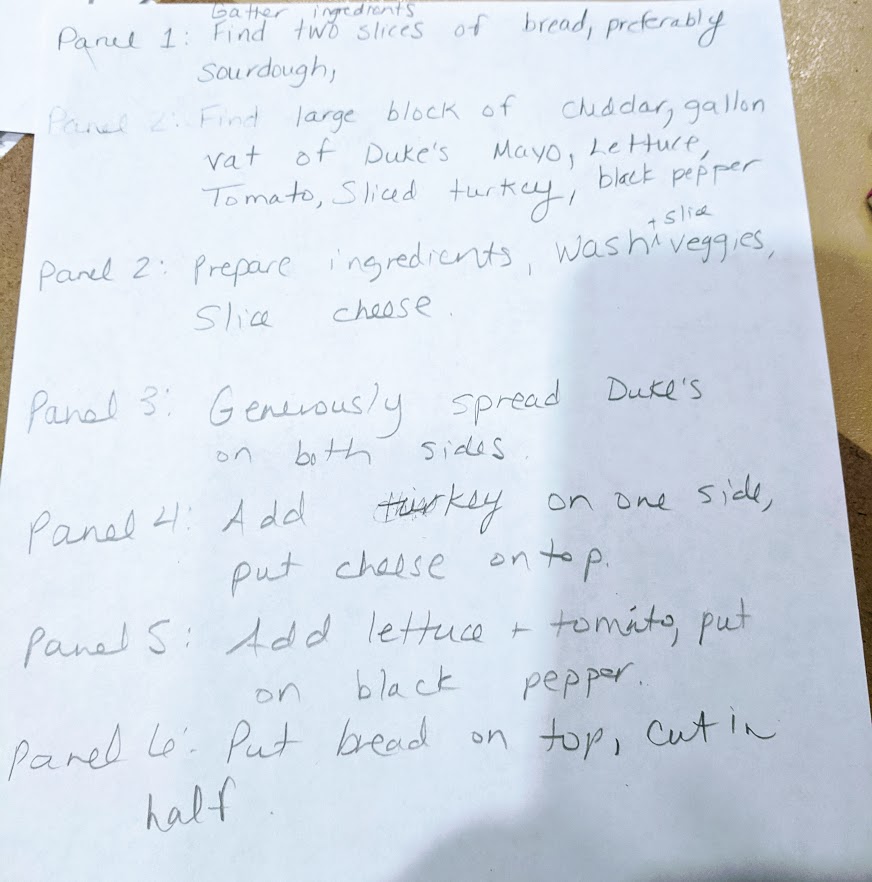 Gather ingredients
Panel 1: Find two slices of bread, preferably
sourdough,
Panel 2: Find large block of cheddar, gallon
vat of Duke's Mayo, Lettuce,
Tomato, Sliced turkey, black pepper
+ slice
Panel 2: Prepare ingredients, Wash ^ veggies,
Slice cheese.
Panel 3: Generously spread Duke's
on both sides.
Panel 4: Add turkey on one side,
put cheese on top.
Panel 5: Add lettuce + tomato, put
on black pepper.
Panel 6: Put bread on top, cut in
half.